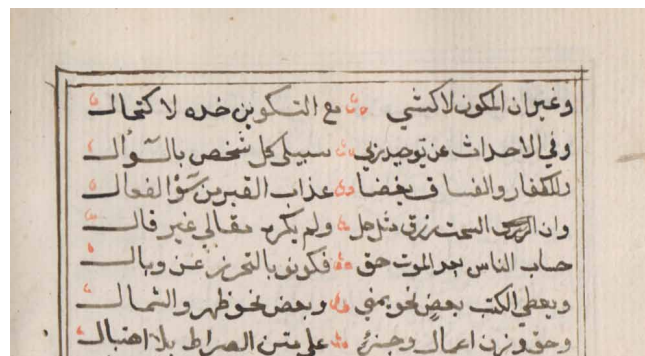 وغيران المكون لاكشي مع التكوين خده لاكتحال
وفي الاحداث عن توحيد ربي سيبلي كل شخص بالسؤال
وللكفار والفساق بغضا عذاب القبر من سؤ الفعال
وان السحت رزق مثل حل ولم يكره مقالي غير قال
حساب الناس بعد الموت حق فكونو بالتحرز عن وبال
ويعطي الكتب بعض نحو يمني وبعض نحو ظهر والشمال
وحق وزن اعمال وجري على متن الصراط بلا اهتبال